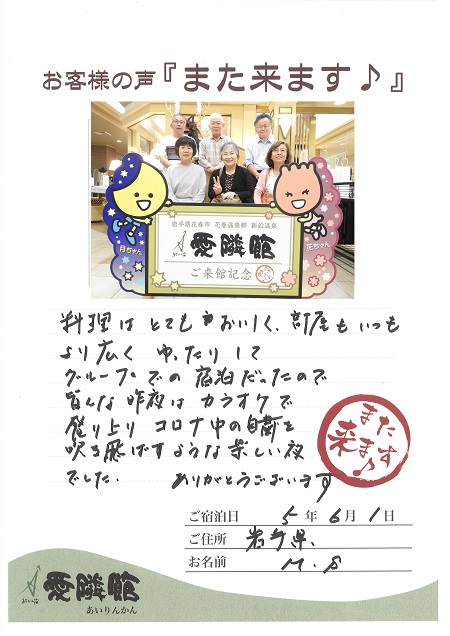 お客様の声『また来ます♪』
月ちゃん
花ちゃん
岩手県花巻市 花巻温泉郷 新鉛温泉
愛隣館
ご来館記念
料理はとてもおいしく、部屋もいつも
より広く ゆったりして
グループでの宿泊だったので
皆んな昨夜はカラオケで
盛り上り コロナ中の自粛を
吹き飛ばすような楽しい夜
でした. ありがとうございます
また来ます♪
ご宿泊日 5年6月1日
ご住所 岩手県、
お名前 M.S
愛隣館
あいりんかん